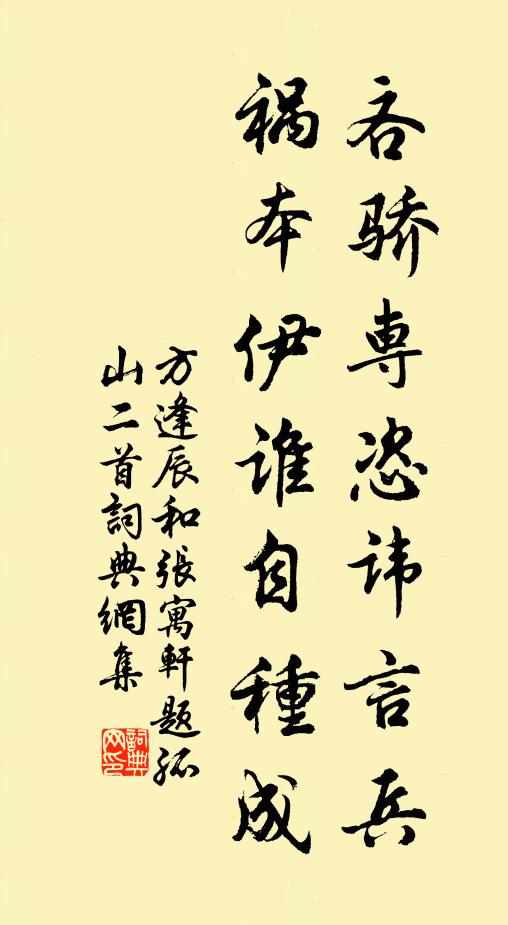 吝骄専恣讳言兵
祸本伊谁自種成
方逢辰和張寓軒题孤
山二首詞典網集
詞典网印